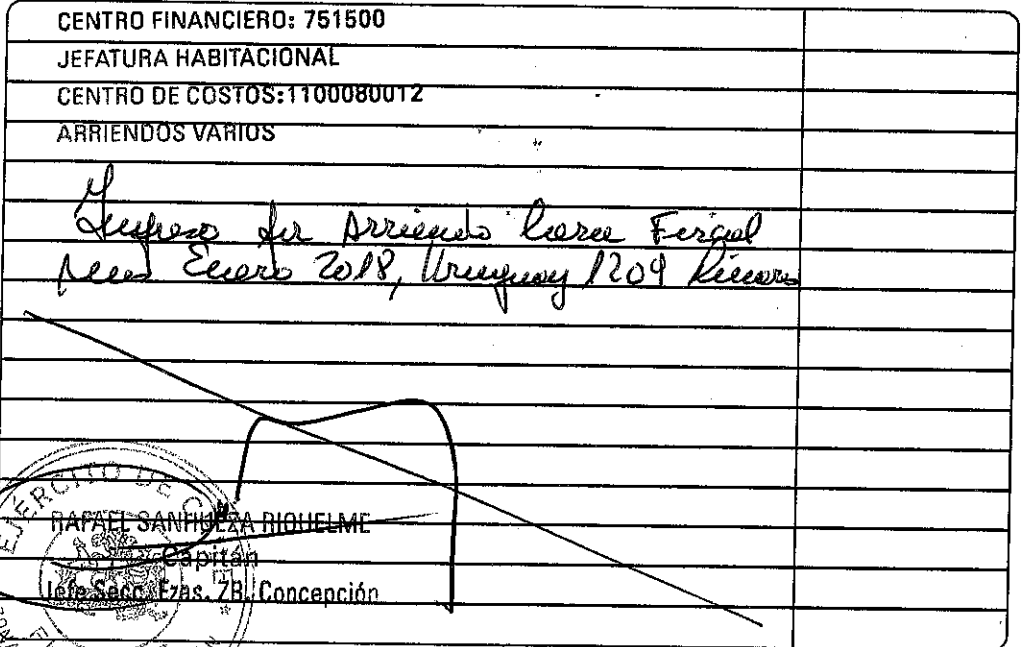 CENTRO FINANCIERO: 751500
JEFATURA HABITACIONAL
CENTRO DE COSTOS:1100080012
ARRIENDOS VARIOS
Ingreso por Arriendo Casa Fiscal
mes Enero 2018, Uruguay 1209
EJERCITO DE
RAFAEL SANHUEZA RIQUELME
Capitán
Jefe Secc. Fzas. ZB. Concepción